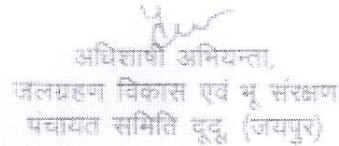 अधिशाषी अभियन्ता,
जलग्रहण विकास एवं भू संरक्षण
पंचायत समिति दूदू (जयपुर)